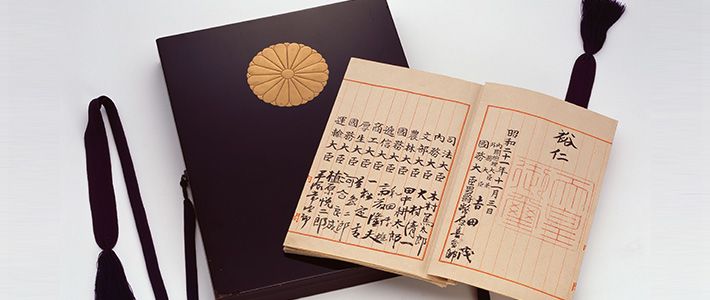 裕仁
天皇御璽
昭和二十一年十一月三日
內閣總理大臣兼
外務大臣 吉田茂
國務大臣 男爵 幣原喜重郎
司法大臣 木村篤太郎
內務大臣 大村清一
文部大臣 田中耕太郎
農林大臣 和田博雄
國務大臣 斎藤隆夫
遞信大臣 一松定吉
商工大臣 星島二郎
厚生大臣
國務大臣 植原悦二郎
運輸大臣 平塚常次郎